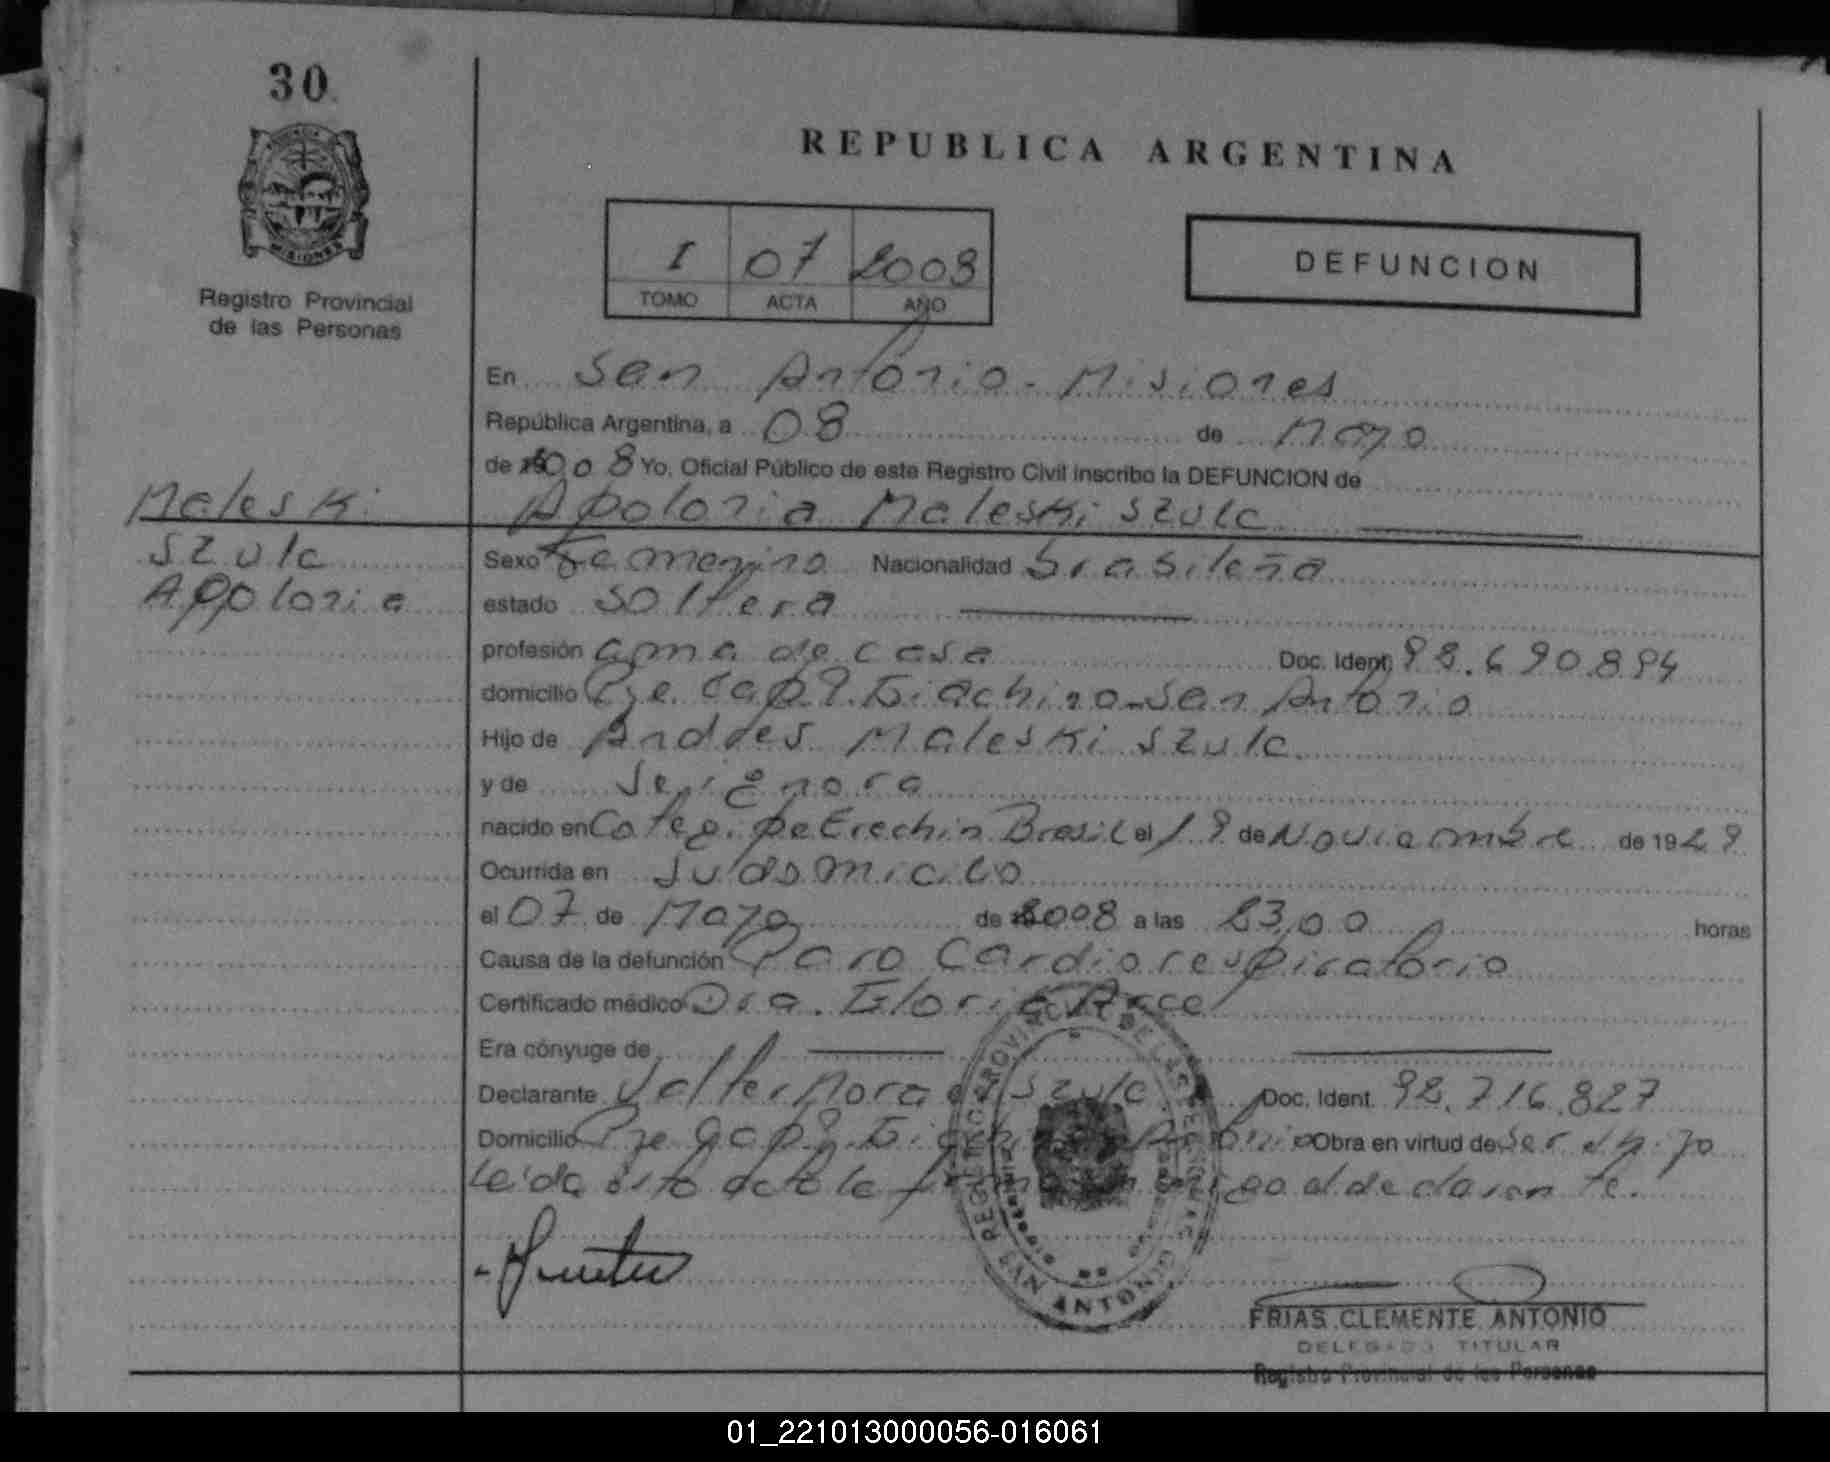 30
REPUBLICA ARGENTINA
MISIONES
Registro Provincial
de las Personas
I 07 2008
TOMO ACTA AÑO
DEFUNCION
En San Antonio - Misiones
República Argentina, a 08 de Mayo
de 2008 Yo, Oficial Público de este Registro Civil inscribo la DEFUNCION de
Maleski
Szulc
Apolonia
Apolonia Maleski Szulc
Sexo Femenino Nacionalidad brasileña
estado soltera
profesión ama de casa Doc. Ident. 92.690.894
domicilio Pje. Cap. Giachino - San Antonio
Hijo de Andres Maleski Szulc
y de
nacido en Erechin Brasil el 19 de Noviembre de 1929
Ocurrida en su domicilio
el 07 de Mayo de 2008 a las 23,00 horas
Causa de la defunción Paro Cardiorespiratorio
Certificado médico Dra. Gloria Arce
Era cónyuge de
Declarante Valter Szulc Doc. Ident. 92.716.827
Domicilio Pje Cap. Antonio Obra en virtud de ser su hijo
Leida esta acta la el declarante.
REGISTRO PROVINCIAL DE LAS PERSONAS
SAN ANTONIO
FRIAS CLEMENTE ANTONIO
DELEGADO TITULAR
Registro Provincial de las Personas
01_221013000056-016061